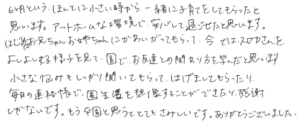 6ヶ月という、ほんとに小さい時から、一緒に子育てをしてもらったと
思います。アートホームな環境で、安心して過ごせたと思います。
はじめお兄ちゃんお姉ちゃんにかわいがってもらって、今では入ってきた子を
よしよしする様子を見て、園でお友達との関わり方を学んだと思います
小さな悩みをしっかり聞いてもらって、はげましてもらったり、
毎日の連絡帳で、園生活を想像することができたり、感謝
しかないです。もう卒園と思うととてもさみしいです。ありがとうございました。